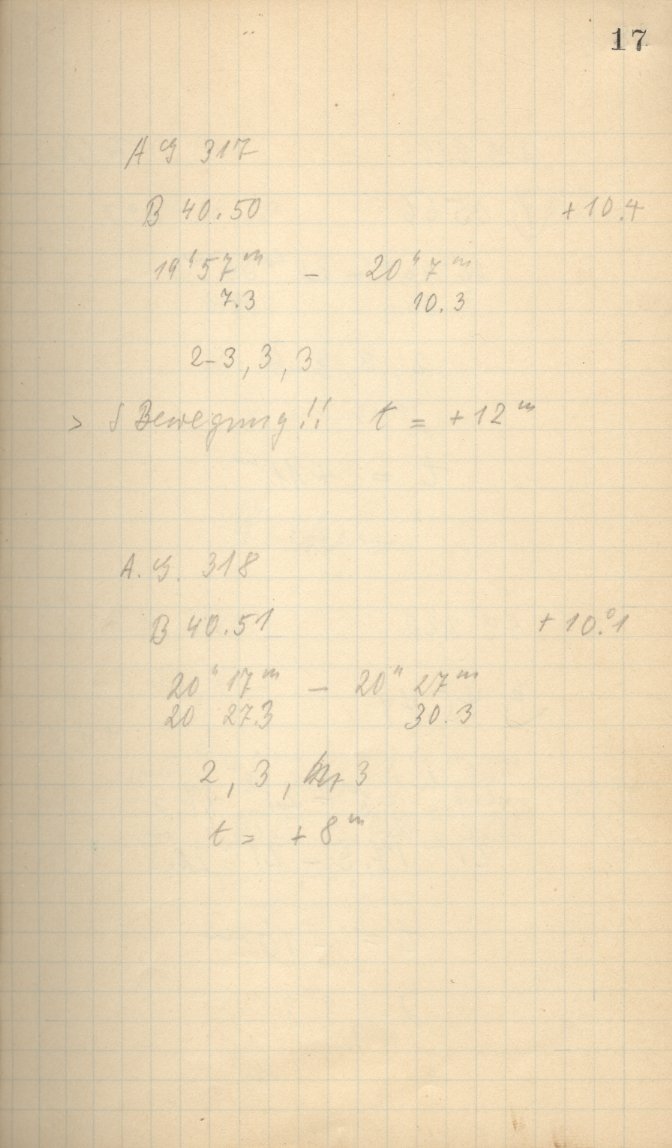 17
A G 317
B 40.50 +10.4
19ʰ57ᵐ – 20ʰ7ᵐ
7.3 10.3
2-3, 3, 3
> δ Bewegung!! t = +12ᵐ
A. G. 318
B 40.51 +10.°1
20ʰ 17ᵐ – 20ʰ 27ᵐ
20 27.3 30.3
2, 3, 3
t = +8ᵐ